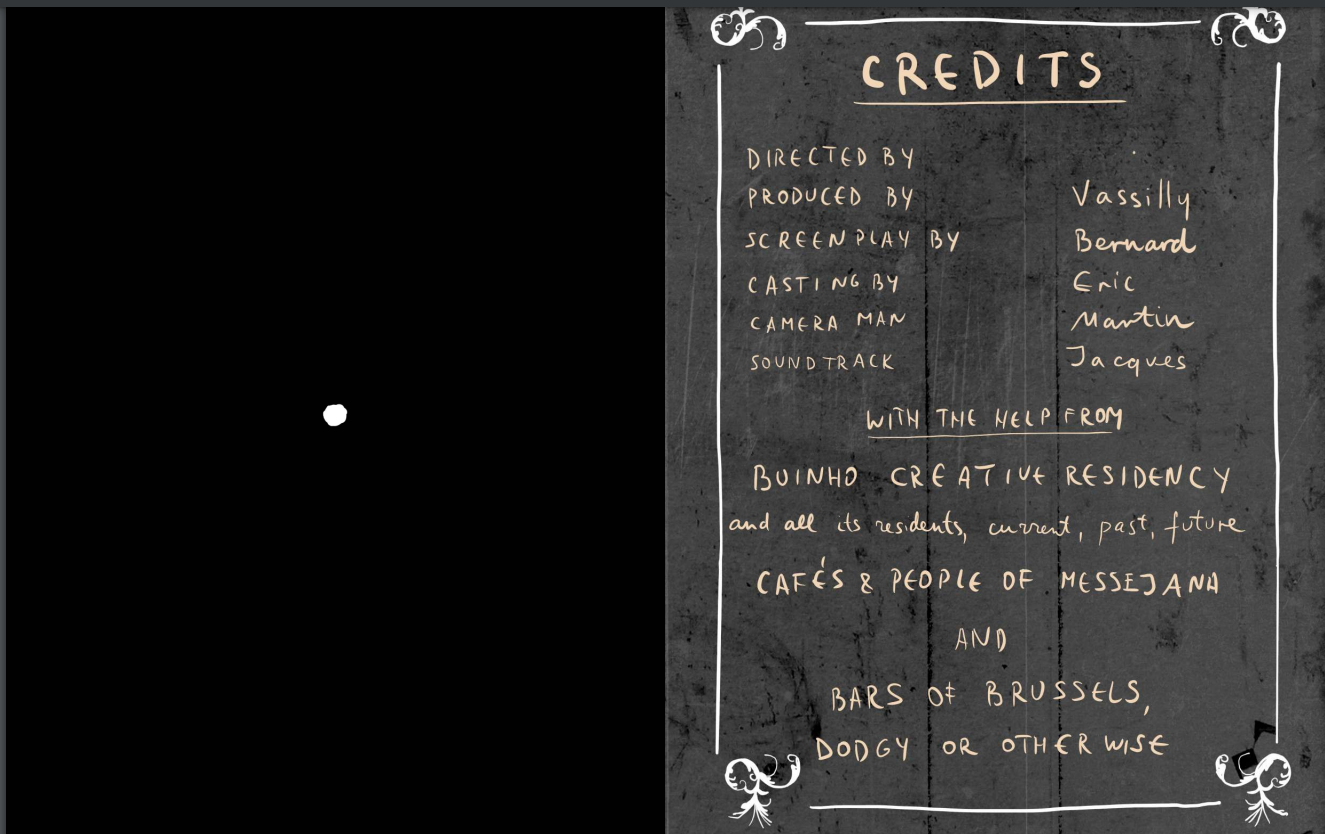 CREDITS
DIRECTED BY
PRODUCED BY Vassilly
SCREENPLAY BY Bernard
CASTING BY Eric
CAMERA MAN Martin
SOUNDTRACK Jacques
WITH THE HELP FROM
BUINHO CREATIVE RESIDENCY
and all its residents, current, past, future
CAFÉS & PEOPLE OF MESSEJANA
AND
BARS OF BRUSSELS,
DODGY OR OTHERWISE